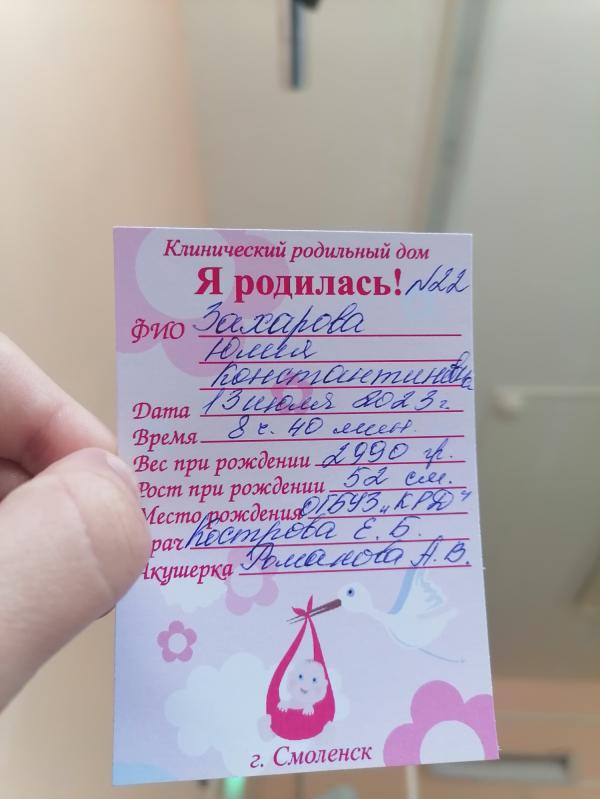 Клинический родильный дом
Я родилась! №22
ФИО Захарова
Юлия
Константиновна
Дата 13 июля 2023 г.
Время 8 ч. 40 мин.
Вес при рождении 2990 гр.
Рост при рождении 52 см.
Место рождения ОГБУЗ „КРД"
Врач Кострова Е. Б.
Акушерка Романова А. В.
г. Смоленск